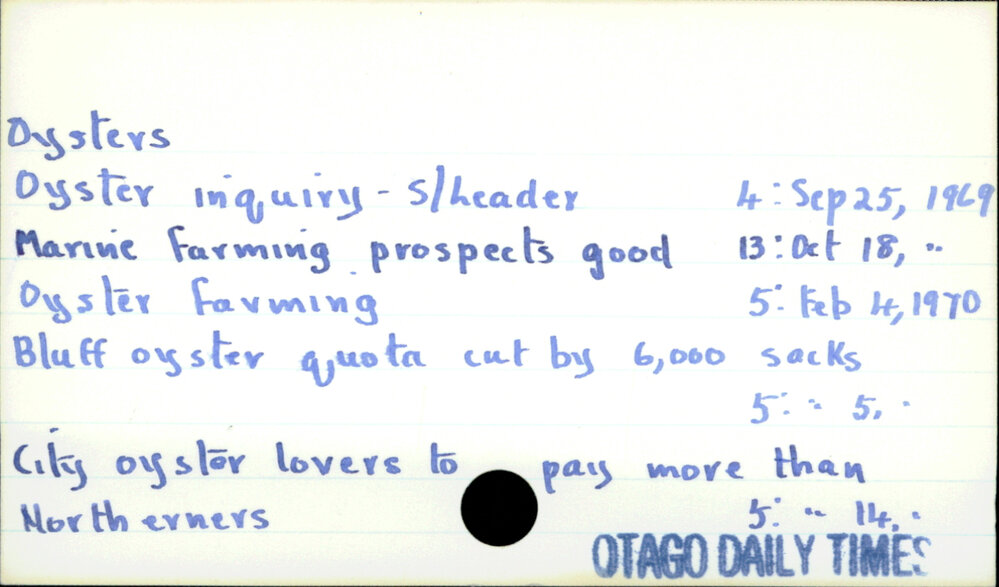 Oysters
Oyster inquiry - S/header 4: Sep 25, 1969
Marine farming prospects good 13: Oct 18, "
Oyster farming 5: Feb 4, 1970
Bluff oyster quota cut by 6,000 sacks
5: " 5, "
City oyster lovers to pay more than
Northerners 5: " 14, "
OTAGO DAILY TIMES